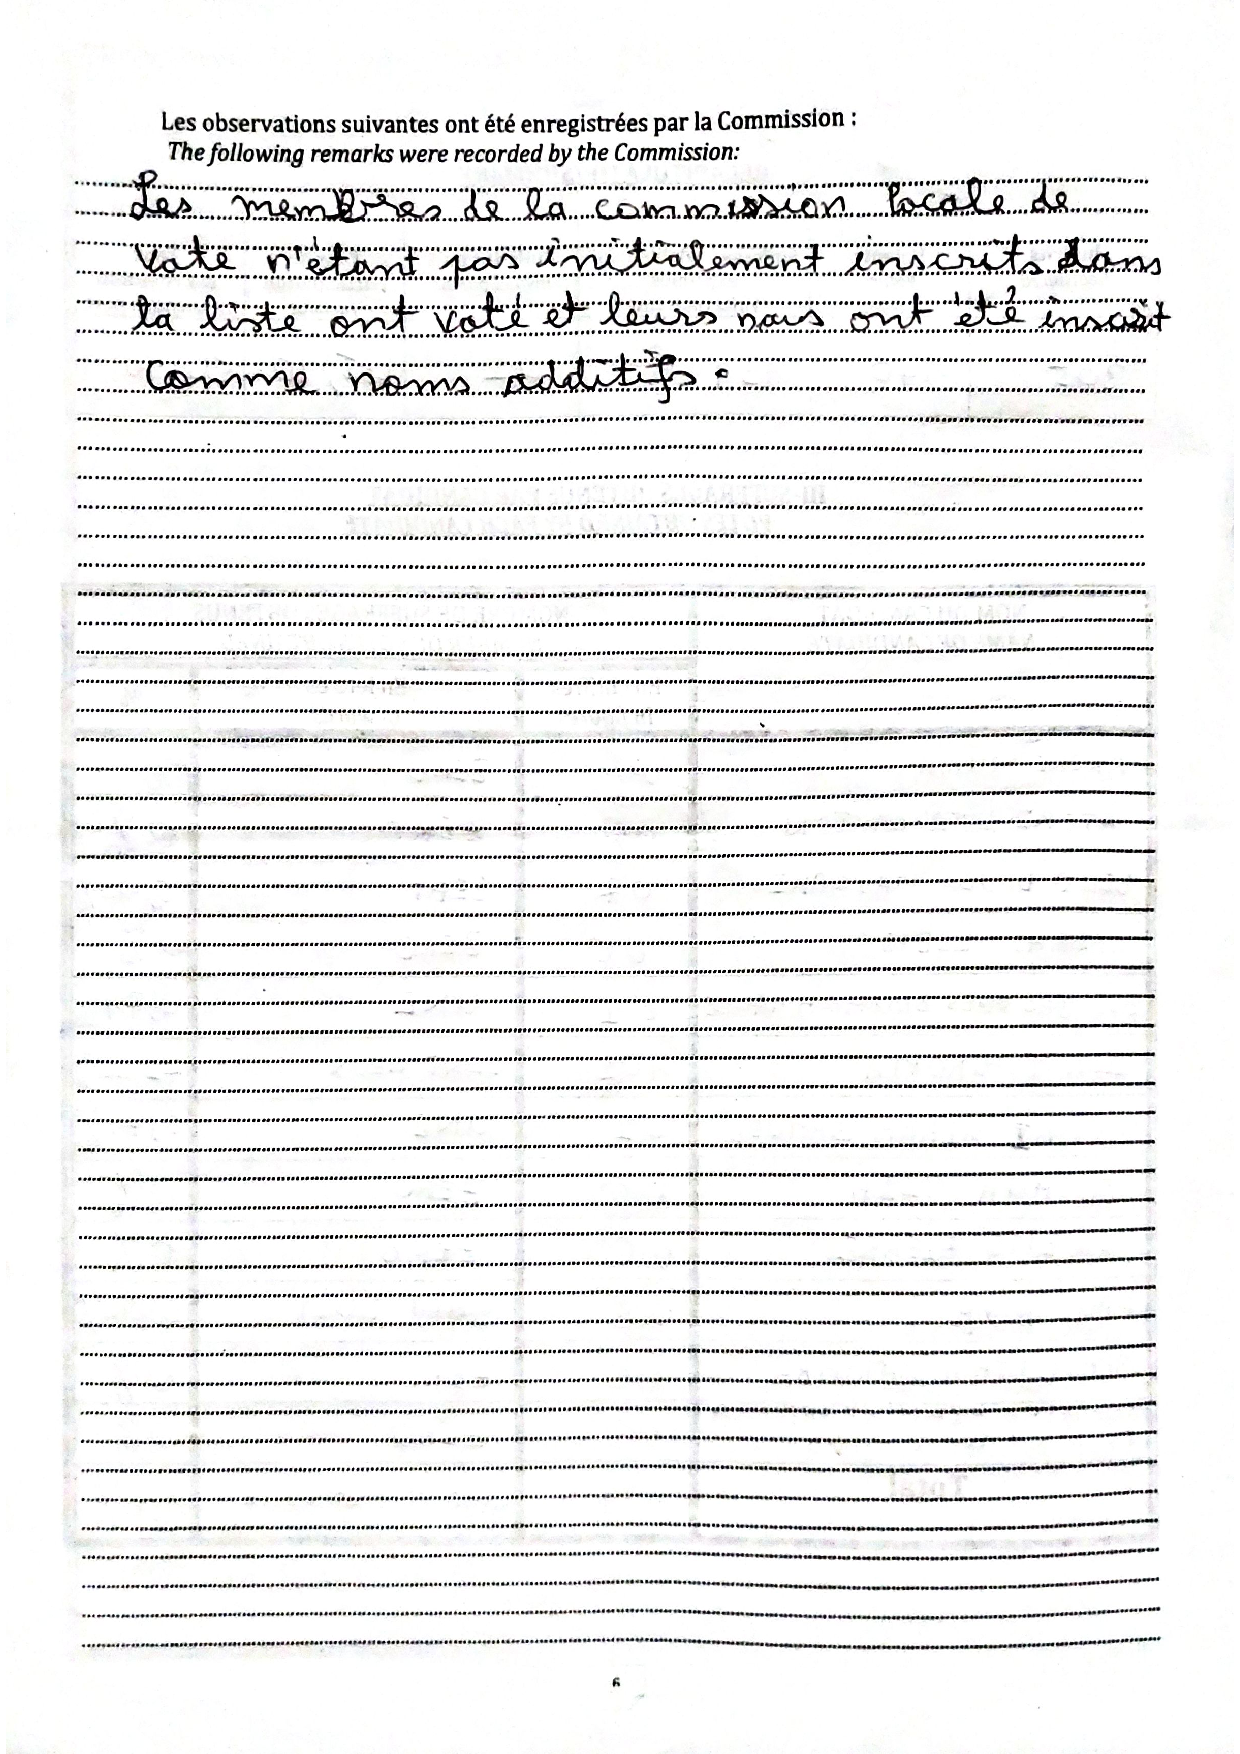 Les observations suivantes ont été enregistrées par la Commission :
The following remarks were recorded by the Commission:
Les membres de la commission locale de
vote n'étant pas initialement inscrits dans
la liste ont voté et leurs noms ont été inscrit
comme noms additifs.
6